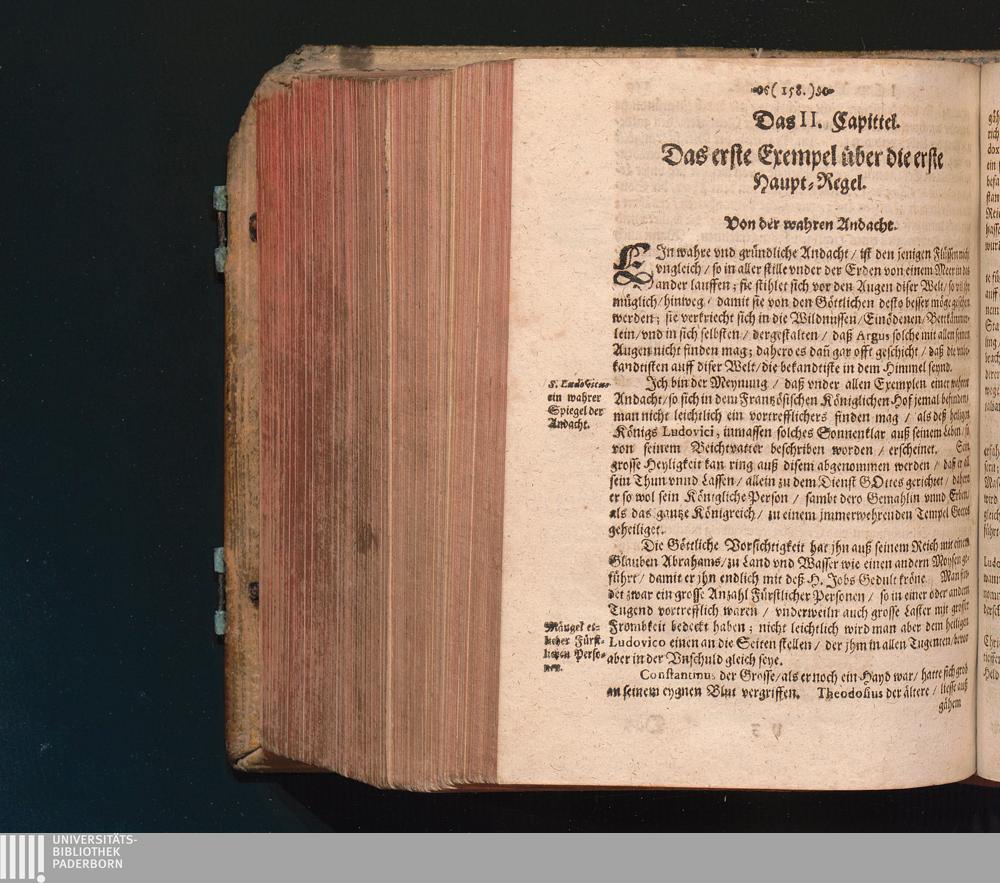 ( 158. )
Das II. Capittel.
Das erste Exempel über die erste
Haupt-Regel.
Von der wahren Andacht.
EIn wahre vnd gründliche Andacht / ist den jenigen Flüssen nicht
vngleich / so in aller stille vnder der Erden von einem Meer in das
ander lauffen ; sie stihlet sich vor den Augen diser Welt / so vil
müglich / hinweg / damit sie von den Göttlichen desto besser möge gesehen
werden ; sie verkriecht sich in die Wildnussen / Einödenen / Bettkämmer-
lein / vnd in sich selbsten / dergestalten / daß Argus solche mit allen seinen
Augen nicht finden mag ; dahero es dañ gar offt geschicht / daß die
kandtisten auff diser Welt / die bekandtiste in dem Himmel seynd.
Ich bin der Meynung / daß vnder allen Exemplen einer wahren
Andacht / so sich in dem Frantzösischen Königlichen Hof jemal befunden /
man nicht leichtlich ein vortrefflichers finden mag / als deß heiligen
Königs Ludovici, inmassen solches Sonnenklar auß seinem Leben / so
von seinem Beichtvatter beschriben worden / erscheinet. Sein
grosse Heyligkeit kan ring auß disem abgenommen werden / daß er all
sein Thun vnnd Lassen / allein zu dem Dienst GOttes gerichtet / dahero
er so wol sein Königliche Person / sambt dero Gemahlin vnnd Erben /
als das gantze Königreich / zu einem jmmerwehrenden Tempel Gottes
geheiliget.
S. Ludovicus
ein wahrer
Spiegel der
Andacht.
Die Göttliche Vorsichtigkeit hat jhn auß seinem Reich mit einem
Glauben Abrahams / zu Land vnd Wasser wie einen andern Moysen ge-
führt / damit er jhn endlich mit deß H. Jobs Gedult kröne. Man fin-
det zwar ein grosse Anzahl Fürstlicher Personen / so in einer oder andern
Tugend vortrefflich waren / vnderweiln auch grosse Laster mit grosser
Frombkeit bedeckt haben ; nicht leichtlich wird man aber dem heiligen
Ludovico einen an die Seiten stellen / der jhm in allen Tugenten / bevor
aber in der Vnschuld gleich seye.
Mängel et-
licher Fürst-
lichen Perso-
nen.
Constantinus der Grosse / als er noch ein Hayd war / hatte sich grob
an seinem eygnen Blut vergriffen. Theodosius der ältere / liesse auß
gähem
UNIVERSITÄTS-
BIBLIOTHEK
PADERBORN